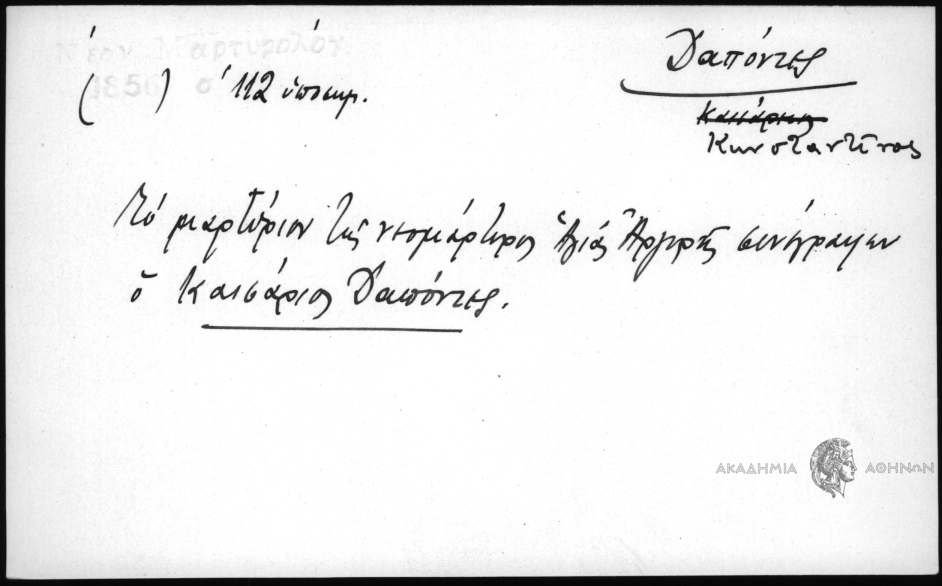 Νέον Μαρτυρολόγ
(1856) σ 112 ὑποσημ.
Δαπόντες
Καισάριος
Κωνσταντῖνος
Τό μαρτύριον τῆς νεομάρτυρος Ἁγίας Ἀργυρῆς συνέγραψεν
ὁ Καισάριος Δαπόντες.
ΑΚΑΔΗΜΙΑ ΑΘΗΝΩΝ